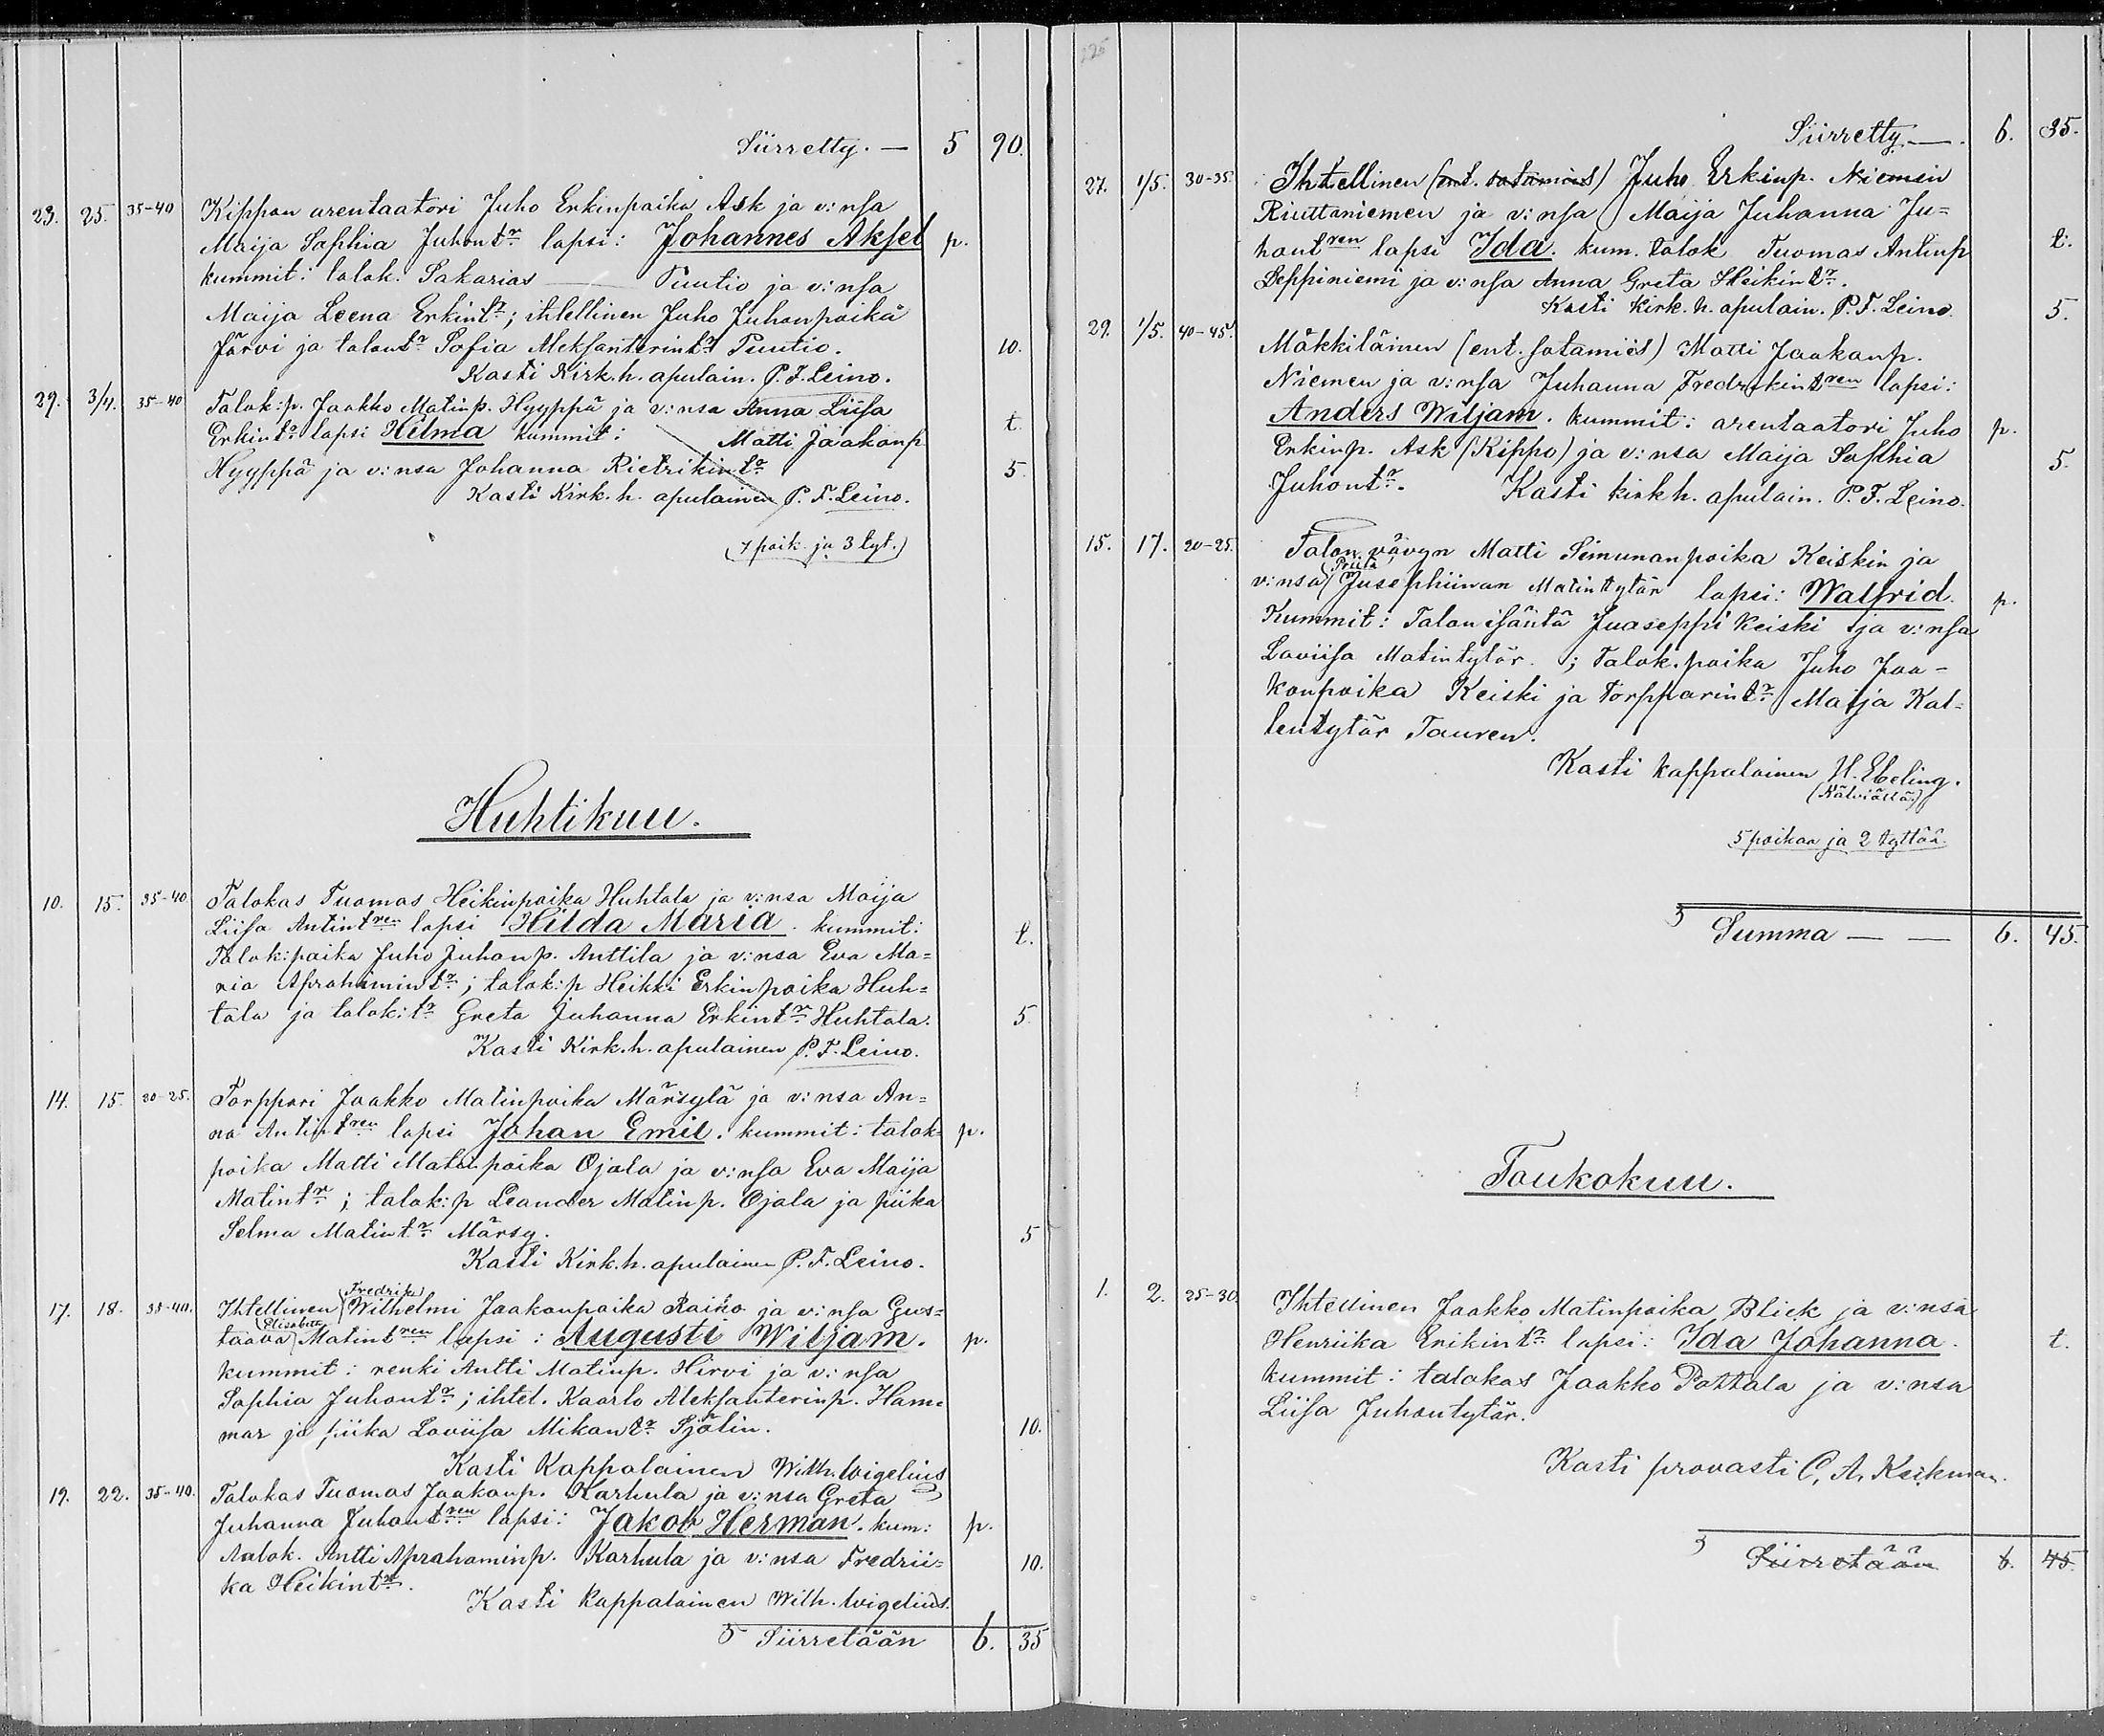 Siirretty. — 5 90.
23. 25. 35-40 Kippon arentaatori Juho Erkinpoika Ask ja v:nsa
Maija Sophia Juhontr lapsi: Johannes Aksel p.
kummit: talok. Sakarias — Puutio ja v:nsa
Maija Leena Erkintr; ihtellinen Juho Juhonpoika
Järvi ja talontr Sofia Aleksanterintr Puutio. 10.
Kasti Kirk.h. apulain. P. F. Leino.
29. 3/4. 35-40 Talok:p. Jaakko Matinp. Hyyppä ja v:nsa Anna Liisa
Erkintr lapsi Hilma kummit: Matti Jaakonp t.
Hyyppä ja v:nsa Johanna Rietrikintr 5.
Kasti Kirk.h. apulainen P. F. Leino.
(7 poik. ja 3 tyt.)
Huhtikuu.
10. 15. 35-40 Talokas Tuomas Heikinpoika Huhtala ja v:nsa Maija
Liisa Antintren lapsi Hilda Maria. kummit: t.
Talok:poika Juho Juhonp. Anttila ja v:nsa Eva Ma=
ria Aprahamintr; talok:p Heikki Erkinpoika Huh=
tala ja talok:tr Greta Juhanna Erkintr Huhtala. 5.
Kasti Kirk.h. apulainen P. F. Leino.
14. 15. 20-25. Torppari Jaakko Matinpoika Märsylä ja v:nsa An=
na Antintren lapsi Johan Emil. kummit: talok= p.
poika Matti Matinpoika Ojala ja v:nsa Eva Maija
Matintr; talok:p Leander Matinp. Ojala ja piika
Selma Matintr Märsy. 5
Kasti Kirk.h. apulainen P. F. Leino.
Fredrik
17. 18. 35-40. Ihtellinen Wilhelmi Jaakonpoika Raisko ja v:nsa Gus=
Elisabetta
taava Matintren lapsi: Augusti Wiljam. p.
kummit: renki Antti Matinp. Hirvi ja v:nsa
Sophia Juhontr; ihtel. Kaarlo Aleksanterinp. Ham=
mar ja piika Loviisa Mikontr Sjölin. 10.
Kasti Kappalainen Wilh. Wigelius
19. 22. 35-40. Talokas Tuomas Jaakonp. Karhula ja v:nsa Greta
Juhanna Juhontren lapsi: Jakob Herman. kum: p.
talok. Antti Aprahaminp. Karhula ja v:nsa Fredrii= 10.
ka Heikintr.
Kasti kappalainen Wilh. Wigelius.
Siirretään 6. 35
225
Siirretty. — 6. 35.
27. 1/5. 30-35. Ihtellinen (ent. sotamies) Juho Erkinp. Niemin
Riuttaniemen ja v:nsa Maija Juhanna Ju=
hontren lapsi Ida. kum. talok Tuomas Antinp t.
Leppiniemi ja v:nsa Anna Greta Heikintr.
Kasti kirk.h. apulain. P. F. Leino. 5.
29. 1/5. 40-45. Mäkkiläinen (ent. sotamies) Matti Jaakonp.
Niemen ja v:nsa Juhanna Fredrikintren lapsi:
Anders Wiljam. kummit: arentaatori Juho p.
Erkinp. Ask (Kippo) ja v:nsa Maija Sophia 5.
Juhontr. Kasti kirkh. apulain. P. F. Leino.
15. 17. 20-25. Talon vävyn Matti Simunanpoika Keiskin ja
v:nsa Jusephiinan Matintytär lapsi: Walfrid. p.
Kummit: Talon isäntä Juaseppi Keiski ja v:nsa
Loviisa Matintytär.; Talok. poika Juho Jaa-
konpoika Keiski ja Torpparintr Maija Kal=
lentytär Tauren.
Kasti kappalainen H. Ebeling.
(Kälviältä)
5 poikaa ja 2 tyttöä.
Summa — — 6. 45.
Toukokuu.
1. 2. 25-30. Ihtellinen Jaakko Matinpoika Blick ja v:nsa
Henriika Erikintr lapsi: Ida Johanna. t.
kummit: talokas Jaakko Pottala ja v:nsa
Liisa Juhontytär.
Kasti provasti C. A. Keckman.
Siirretään 6. 45.